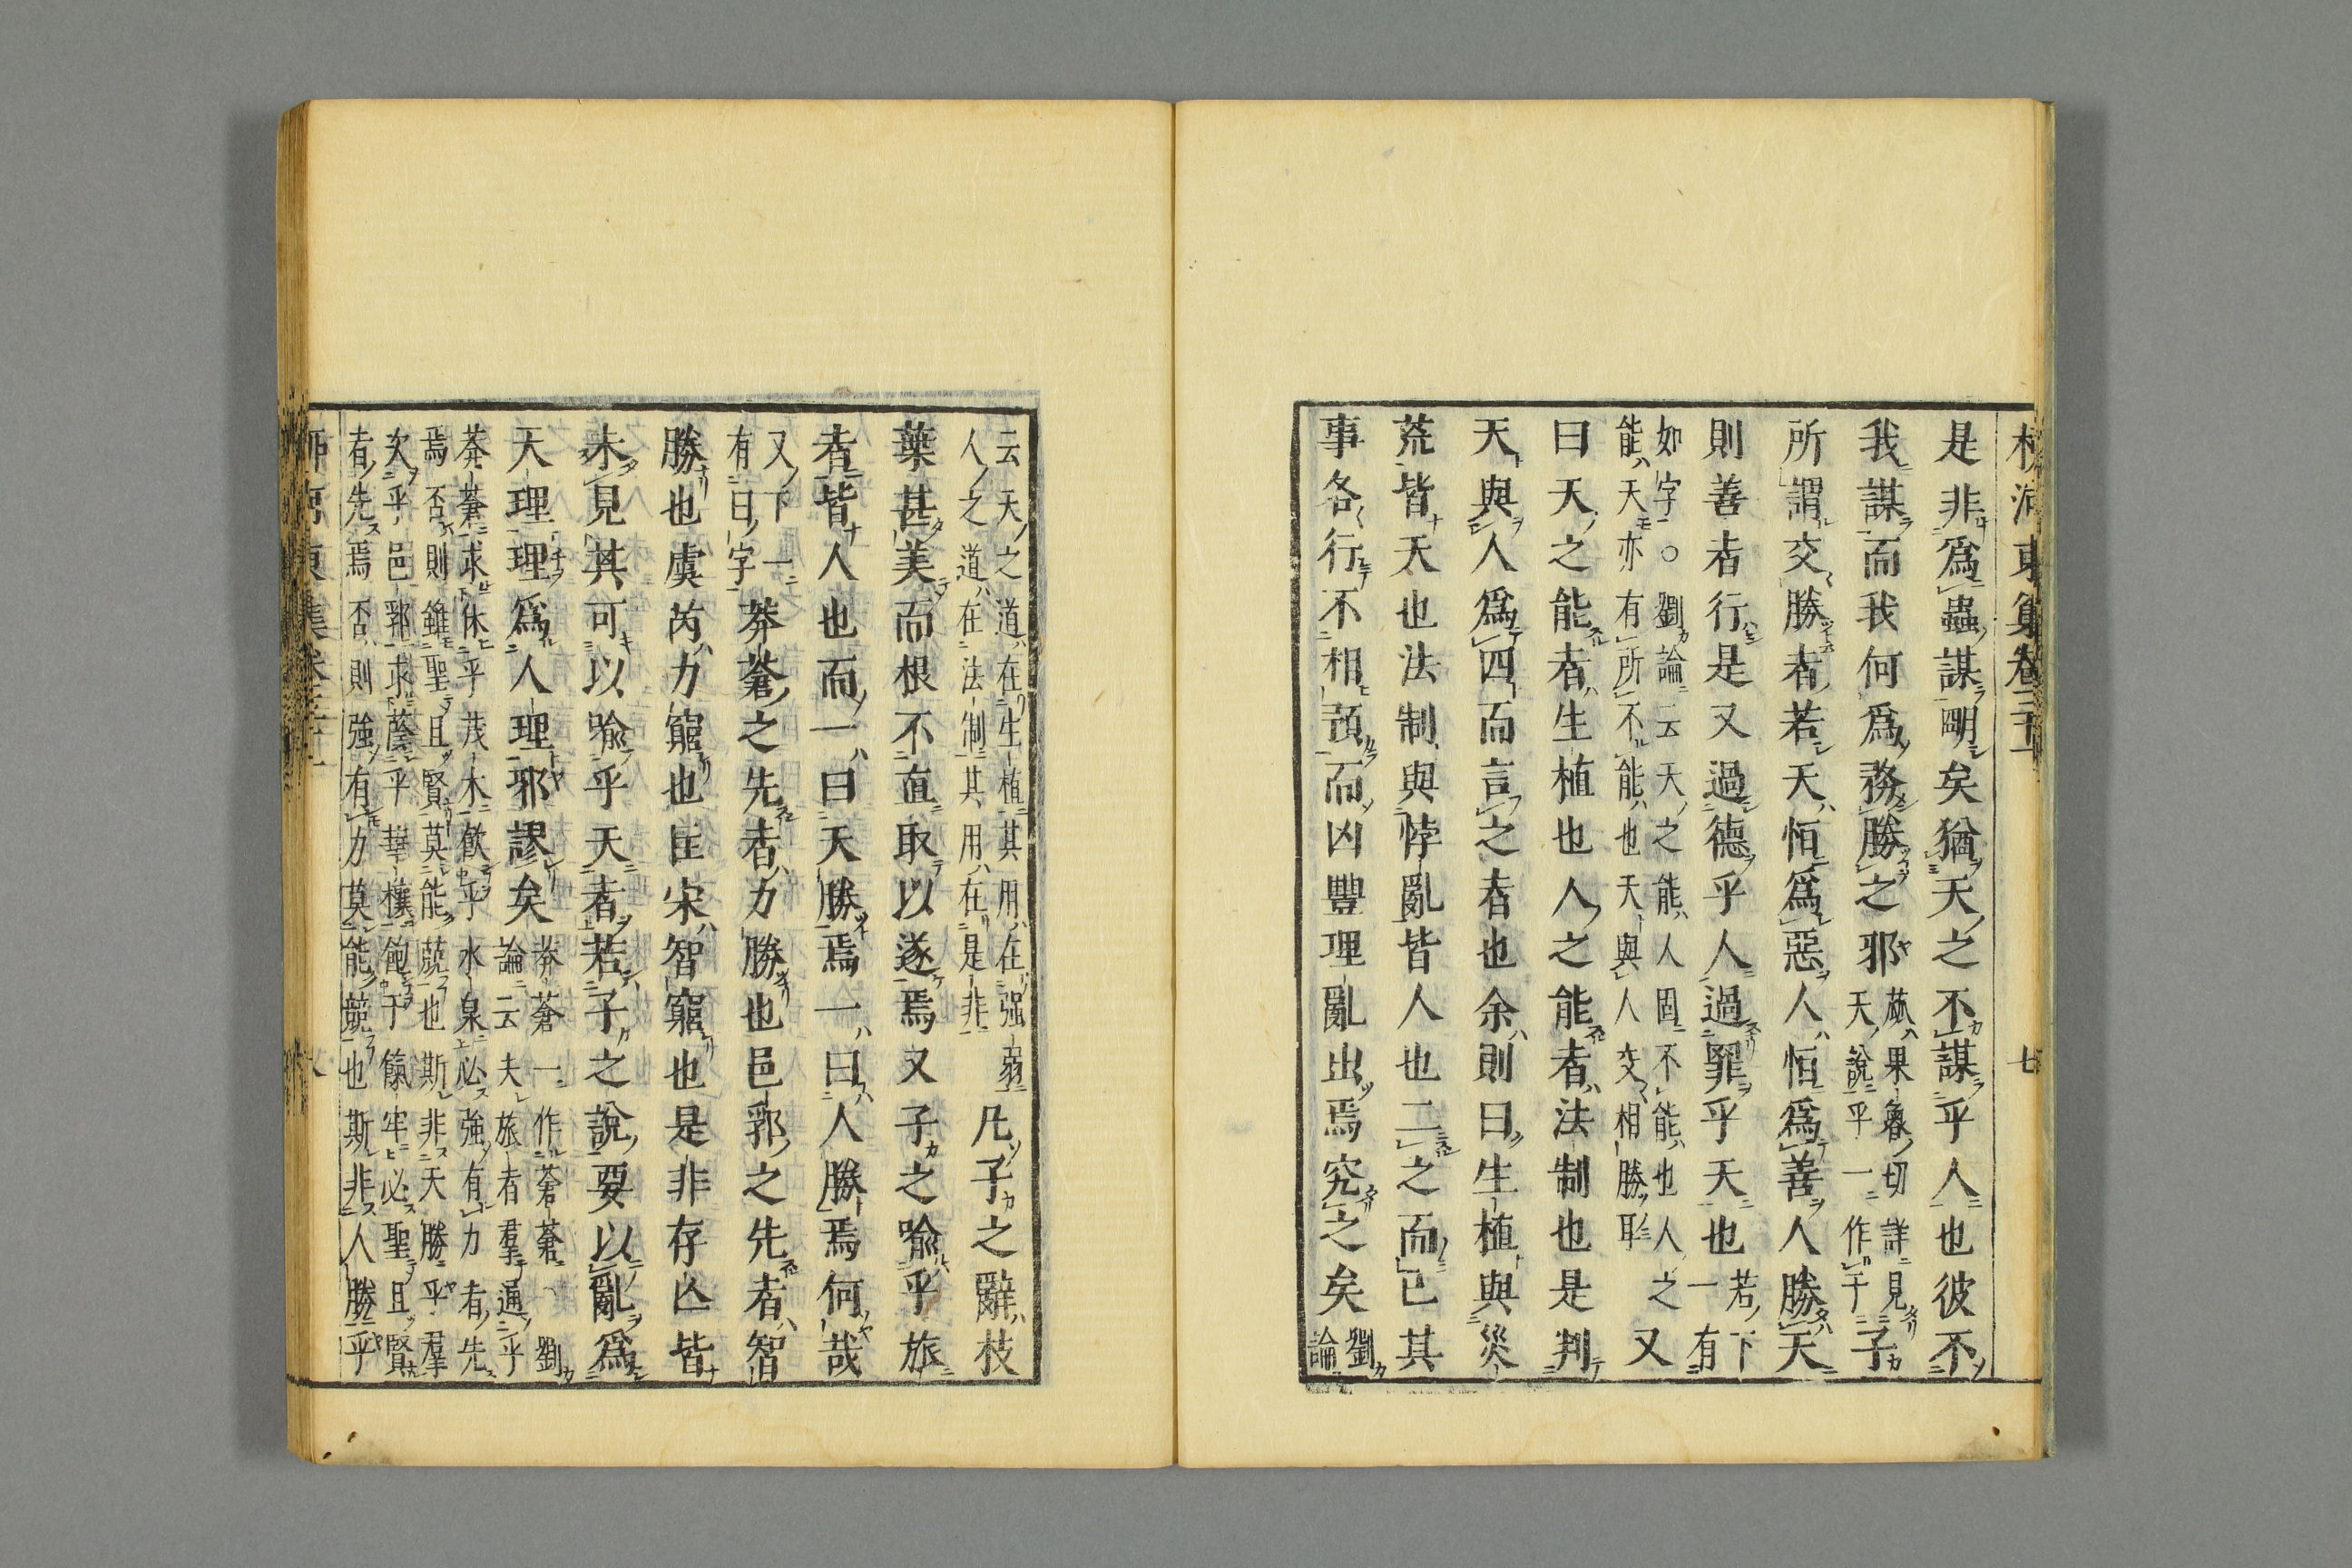 河東集卷三十一 七
是非爲蟲謀明矣猶天之不謀乎人也彼不
我謀而我何爲務勝之邪蓏果魯切詳見
天說乎一作于
子
所謂交勝者若天恒爲惡人恒爲善人勝天
則善者行是又過德乎人過罪乎天也若下
一有
如字○劉論云天之能人固不能也人之
能天亦有所不能也天與人交相勝耳
又
曰天之能者生植也人之能者法制也是判
天與人爲四而言之者也余則曰生植與災
荒皆天也法制與悖亂皆人也二之而已其
事各行不相預而凶豐理亂出焉究之矣劉
論
云天之道在生植其用在强弱
人之道在法制其用在是非
凡子之辭枝
葉甚美而根不直取以遂焉又子之喻乎旅
者皆人也而一曰天勝焉一曰人勝焉何哉
又下一
有曰字
莽蒼之先者力勝也邑郛之先者智
勝也虞芮力窮也匡宋智窮也是非存亡皆
未見其可以喻乎天者若子之說要以亂爲
天理理爲人理邪謬矣莽蒼一作蒼莽劉
論云夫旅者羣適乎
莽蒼求休乎茂木飲乎水泉必強有力者先
焉否則雖聖且賢莫能競也斯非天勝乎羣
次乎邑郛求蔭乎華榱飽于餼牢必聖且賢
者先焉否則強有力莫能競也斯非人勝乎